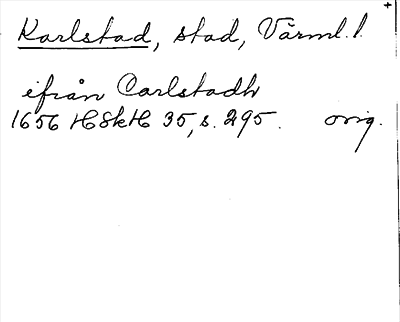 Karlstad, stad, Värml. l.
ifrån Carlstadh
1656 HSkH 35, s. 295. orig.